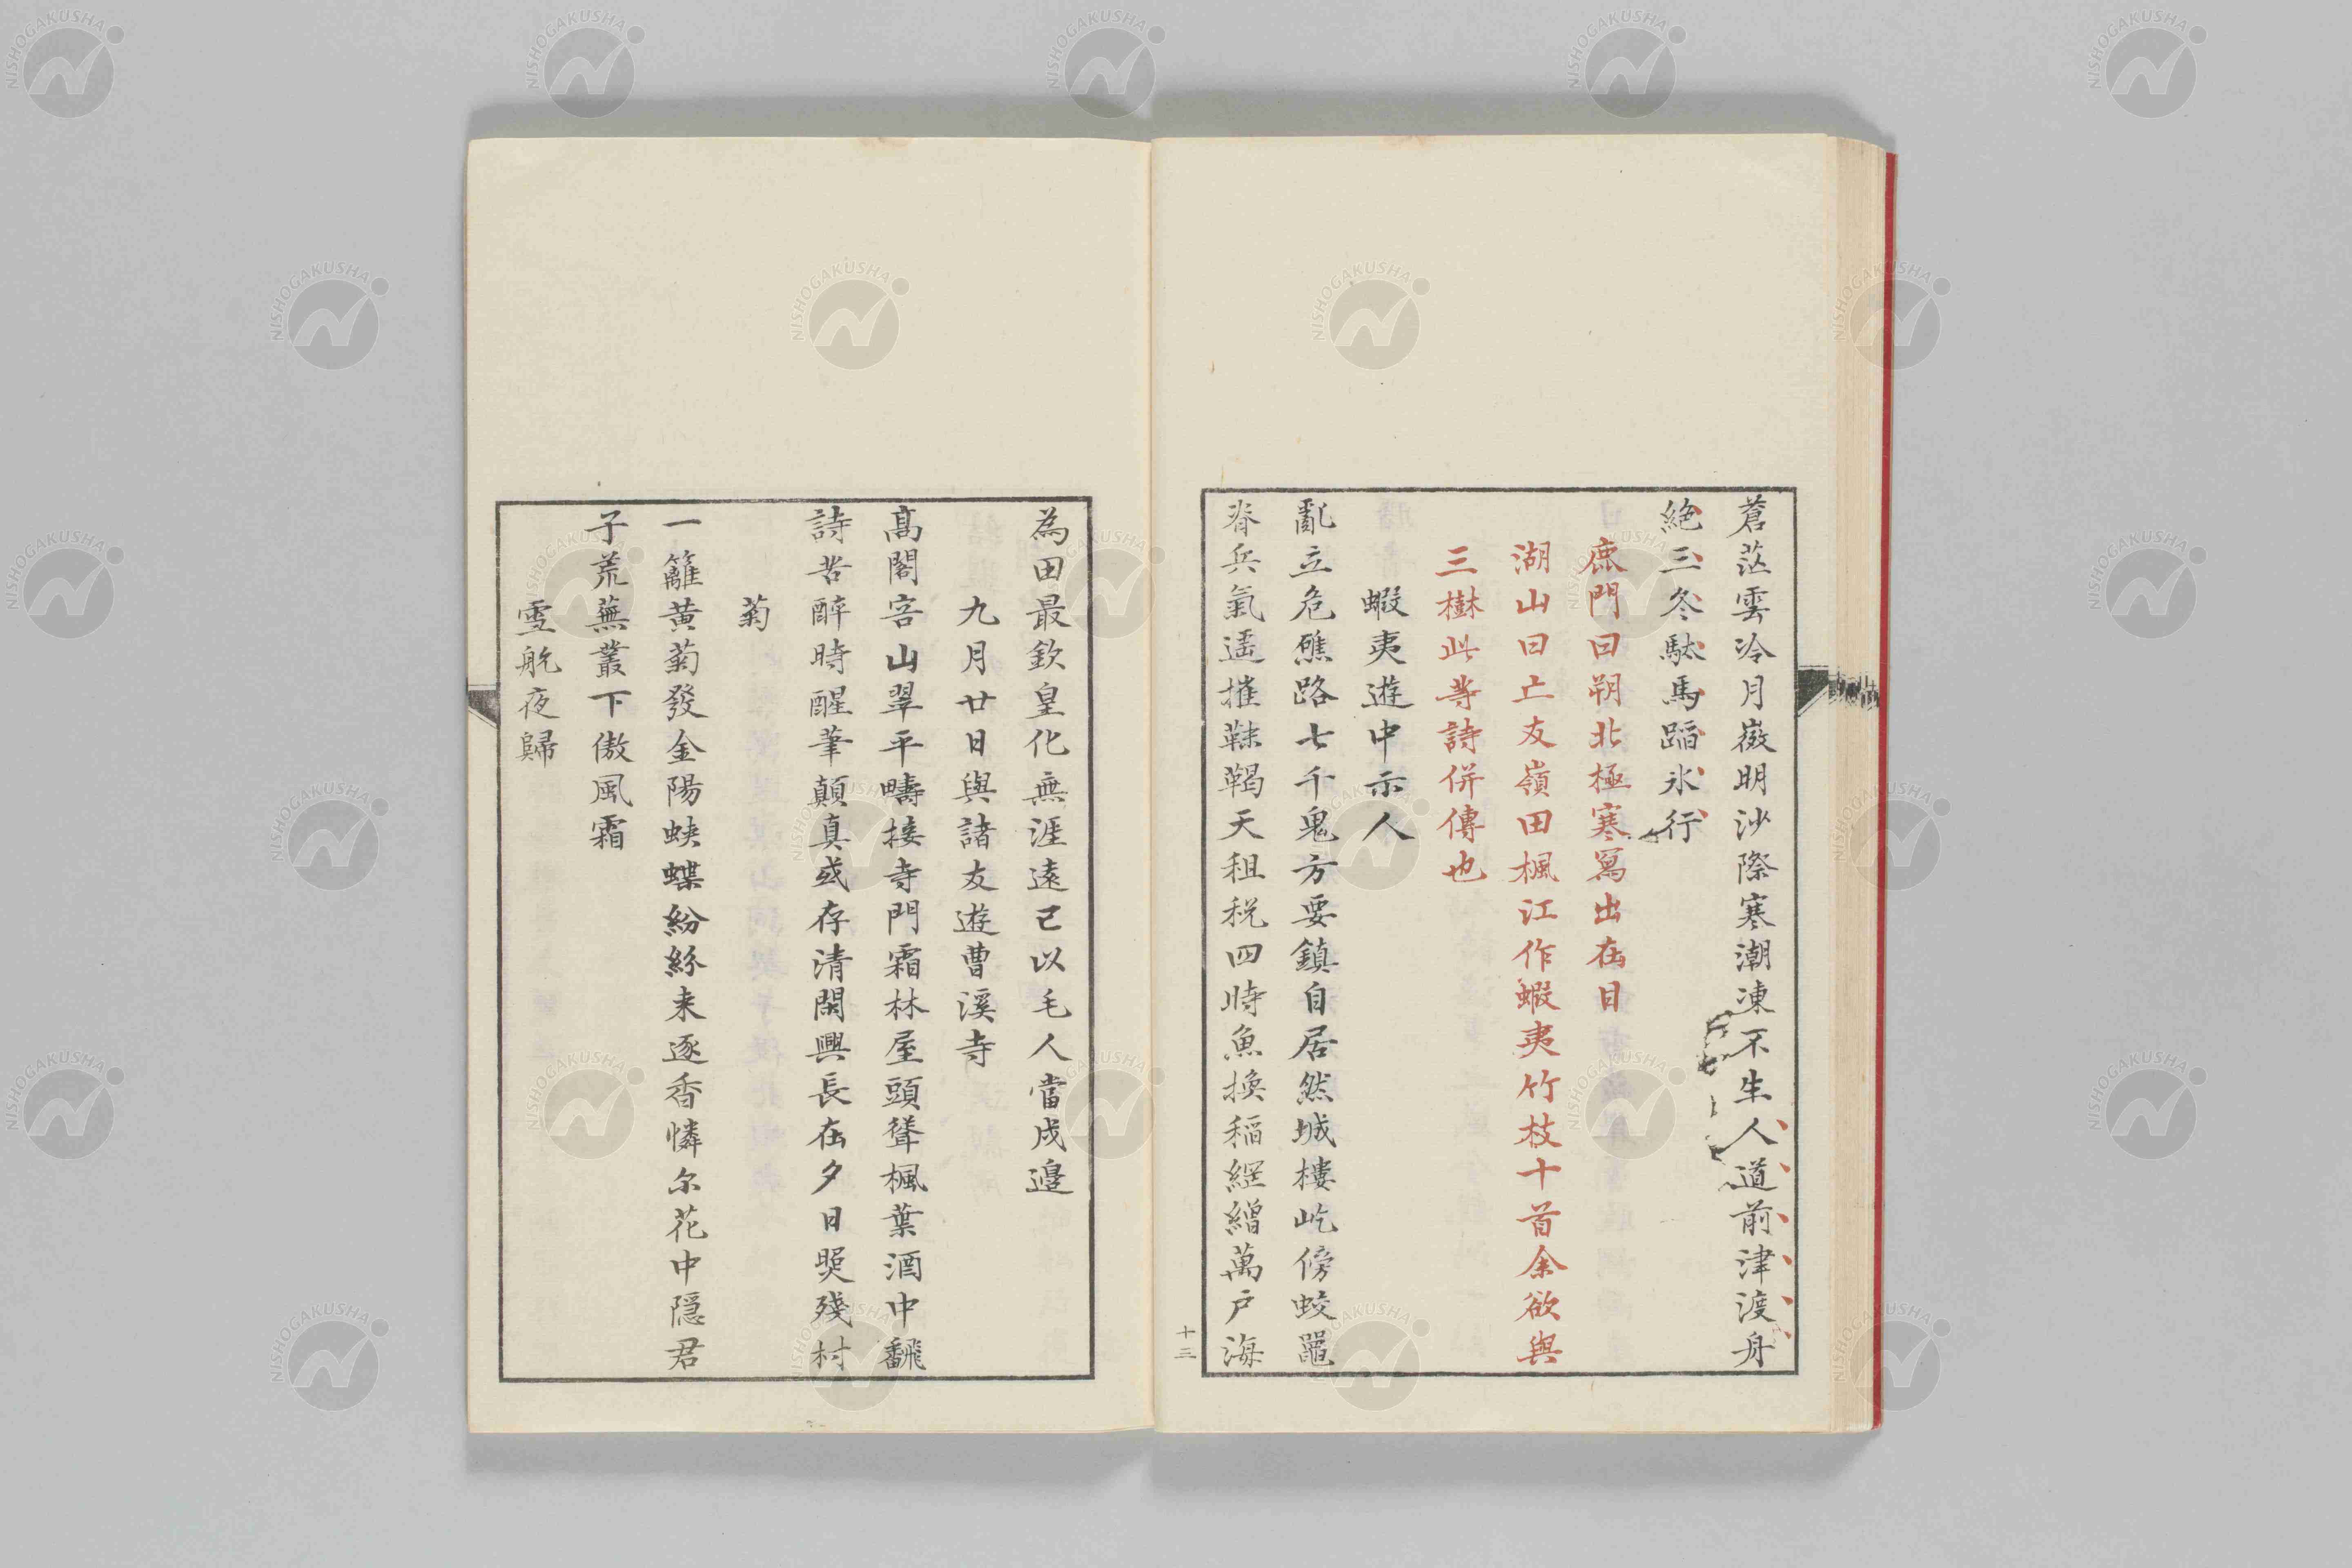 蒼茫雲冷月嶶明沙際寒潮凍不生人道前津渡舟
絶三冬駄馬蹈氷行
鹿門曰朔北極寒寫出在目
湖山曰亡友嶺田楓江作蝦夷竹枝十首余欲與
三樹此等詩併傳也
蝦夷遊中示人
亂立危礁路七千鬼方要鎮自居然城樓屹傍蛟鼉
脊兵氣遥摧靺鞨天租税四時魚換稻綱繒萬戸海
十三
為田最欽皇化無涯遠已以毛人當戍邊
九月廿日與諸友遊曹溪寺
髙閣容山翠平疇接寺門霜林屋頭聳楓葉酒中飜
詩苦醉時醒筆顛真或存清閑興長在夕日照殘村
菊
一籬黄菊發金陽蛺蝶紛紛来逐香憐尓花中隠君
子荒蕪叢下傲風霜
雪舩夜歸
NISHOGAKUSHA